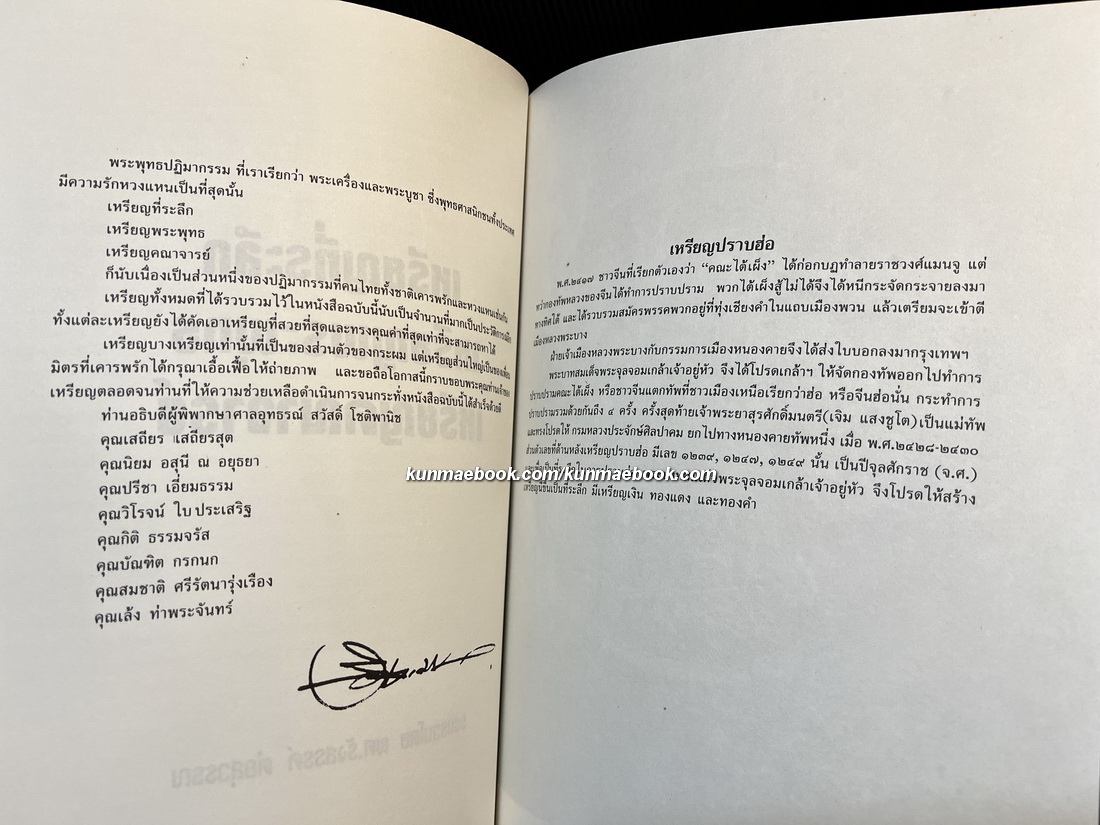 พระพุทธปฏิมากรรม ที่เราเรียกว่า พระเครื่องและพระบูชา ซึ่งพุทธศาสนิกชนทั้งประเทศ
มีความรักหวงแหนเป็นที่สุดนั้น
เหรียญที่ระลึก
เหรียญพระพุทธ
เหรียญคณาจารย์
ก็นับเนื่องเป็นส่วนหนึ่งของปฏิมากรรมที่คนไทยทั้งชาติเคารพรักและหวงแหนเช่นกัน
เหรียญทั้งหมดที่ได้รวบรวมไว้ในหนังสือฉบับนี้นับเป็นจำนวนที่มากเป็นประวัติการณ์อีก
ทั้งแต่ละเหรียญยังได้คัดเอาเหรียญที่สวยที่สุดและทรงคุณค่าที่สุดเท่าที่จะสามารถหาได้
เหรียญบางเหรียญเท่านั้นที่เป็นของส่วนตัวของกระผม แต่เหรียญส่วนใหญ่เป็นของเพื่อน
มิตรที่เคารพรักได้กรุณาเอื้อเฟื้อให้ถ่ายภาพ และขอถือโอกาสนี้กราบขอบพระคุณท่านเจ้าของ
เหรียญตลอดจนท่านที่ให้ความช่วยเหลือดำเนินการจนกระทั่งหนังสือฉบับนี้ได้สำเร็จด้วยดี
ท่านอธิบดีผู้พิพากษาศาลอุทธรณ์ สวัสดิ์ โชติพานิช
คุณเสถียร เสถียรสุต
คุณนิยม อสุนี ณ อยุธยา
คุณปรีชา เอี่ยมธรรม
คุณวิโรจน์ ใบประเสริฐ
คุณกิติ ธรรมจรัส
คุณบัณฑิต กรกนก
คุณสมชาติ ศรีรัตนารุ่งเรือง
คุณเล้ง ท่าพระจันทร์
เหรียญปราบฮ่อ
พ.ศ.๒๔๑๗ ชาวจีนที่เรียกตัวเองว่า “คณะไต้เผ็ง” ได้ก่อกบฏทำลายราชวงศ์แมนจู แต่
ทว่ากองทัพหลวงของจีนได้ทำการปราบปราม พวกไต้เผ็งสู้ไม่ได้จึงได้หนีกระจัดกระจายลงมา
ทางทิศใต้ และได้รวบรวมสมัครพรรคพวกอยู่ที่ทุ่งเชียงคำในแถบเมืองพวน แล้วเตรียมจะเข้าตี
เมืองหลวงพระบาง
ฝ่ายเจ้าเมืองหลวงพระบางกับกรรมการเมืองหนองคายจึงได้ส่งใบบอกลงมากรุงเทพฯ
พระบาทสมเด็จพระจุลจอมเกล้าเจ้าอยู่หัว จึงได้โปรดเกล้าฯ ให้จัดกองทัพออกไปทำการ
ปราบปรามคณะไต้เผ็ง หรือชาวจีนแตกทัพที่ชาวเมืองเหนือเรียกว่าฮ่อ หรือจีนฮ่อนั่น กระทำการ
ปราบปรามรวมด้วยกันถึง ๔ ครั้ง ครั้งสุดท้ายเจ้าพระยาสุรศักดิ์มนตรี(เจิม แสงชูโต)เป็นแม่ทัพ
และทรงโปรดให้ กรมหลวงประจักษ์ศิลปาคม ยกไปทางหนองคายทัพหนึ่ง เมื่อ พ.ศ.๒๔๒๘-๒๔๓๐
ส่วนตัวเลขที่ด้านหลังเหรียญปราบฮ่อ มีเลข ๑๒๓๙, ๑๒๔๗, ๑๒๔๙ นั้น เป็นปีจุลศักราช (จ.ศ.)
พระจุลจอมเกล้าเจ้าอยู่หัว จึงโปรดให้สร้าง
เหรียญนี้ขึ้นเป็นที่ระลึก มีเหรียญเงิน ทองแดง และทองคำ
kunmaebook.com/kunmaebook.com